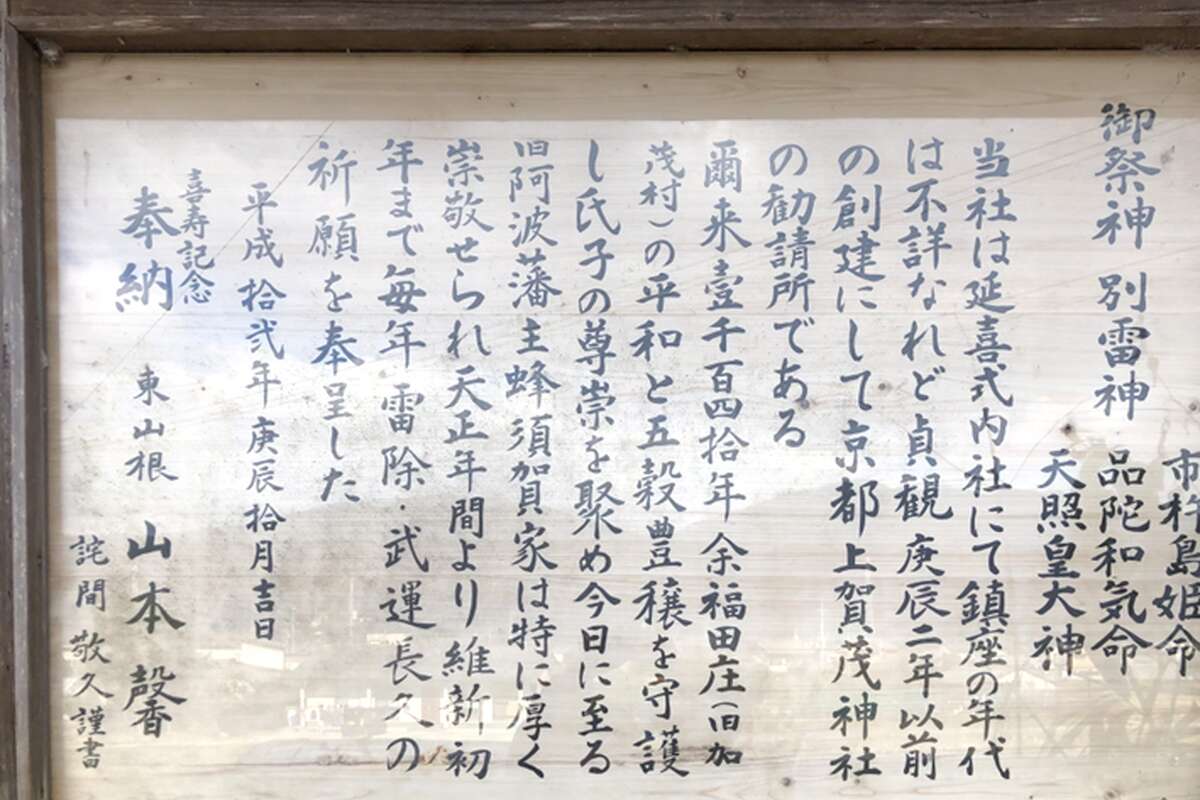 市杵島姫命
御祭神 別雷神 品陀和気命
天照皇大神
当社は延喜式内社にて鎮座の年代
は不詳なれど貞観庚辰二年以前
の創建にして京都上賀茂神社
の勧請所である
爾来壹千百四拾年余福田庄(旧加
茂村)の平和と五穀豊穣を守護
し氏子の尊崇を聚め今日に至る
旧阿波藩主蜂須賀家は特に厚く
崇敬せられ天正年間より維新初
年まで毎年雷除・武運長久の
祈願を奉呈した
平成拾弐年庚辰拾月吉日
喜寿記念
奉納 東山根 山本馨
詫間敬久謹書